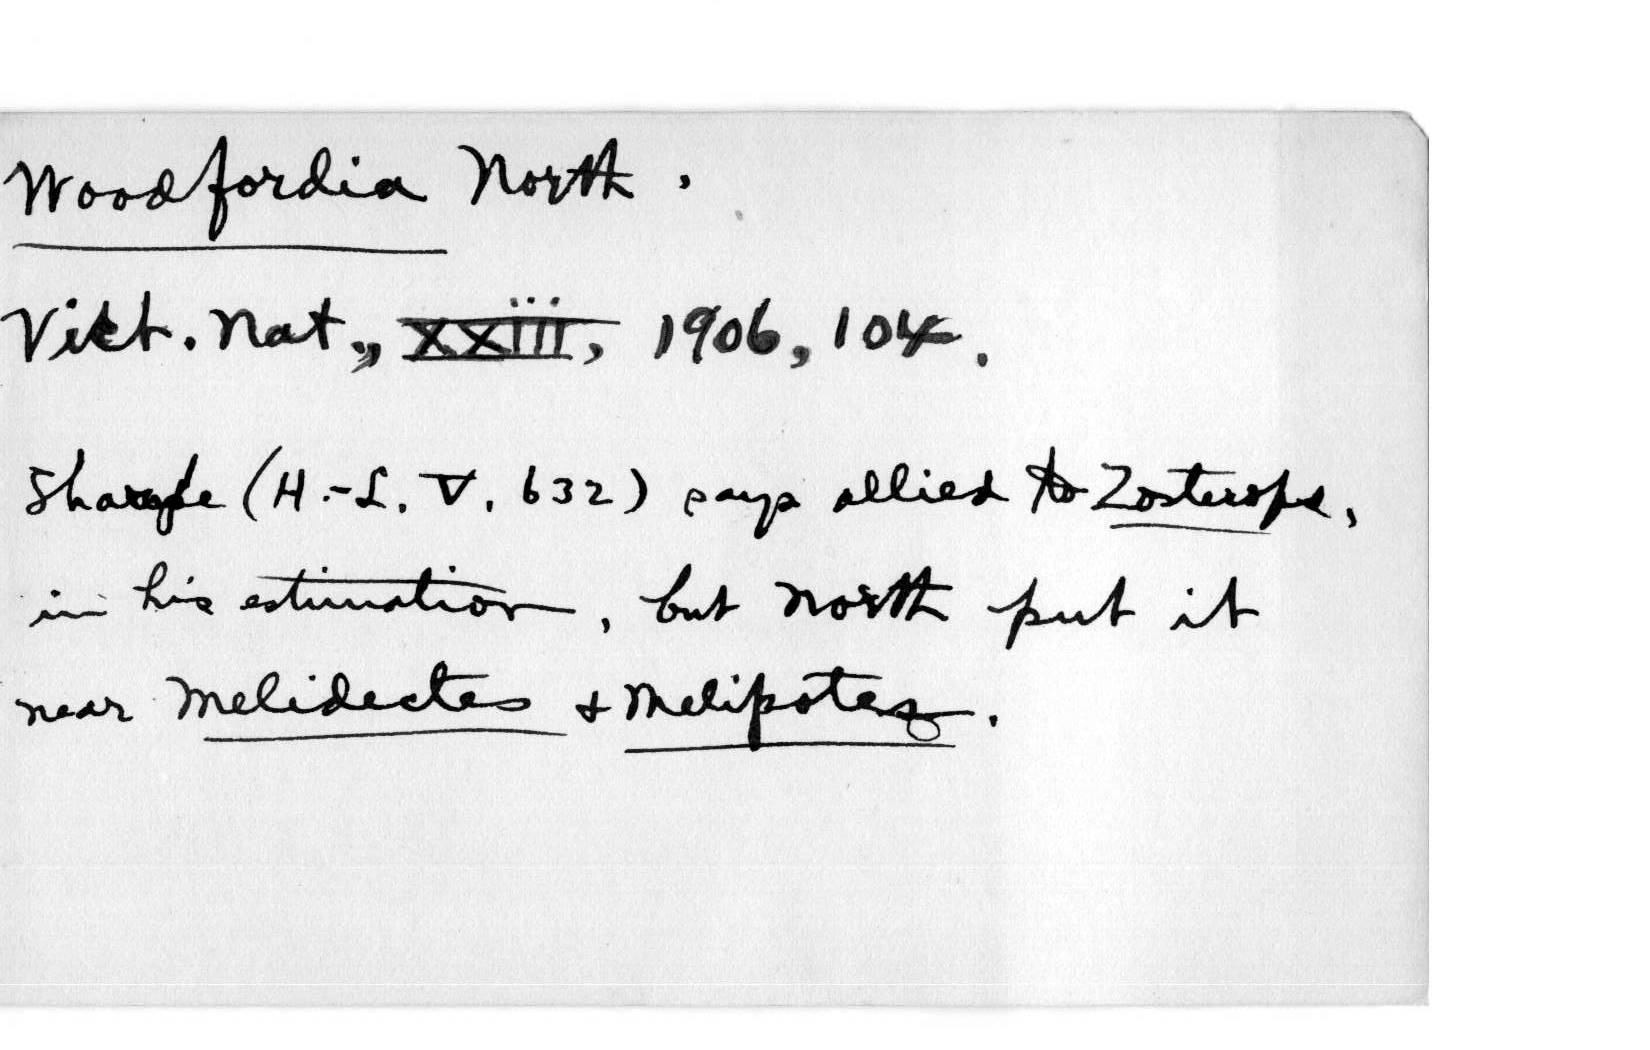 Woodfordia North.
Vict. Nat., xxiii, 1906, 104.
Sharpe (H.-L. V. 632) says allied to Zosterops,
in his estimation, but North put it
near Melidectes & Melipotes.